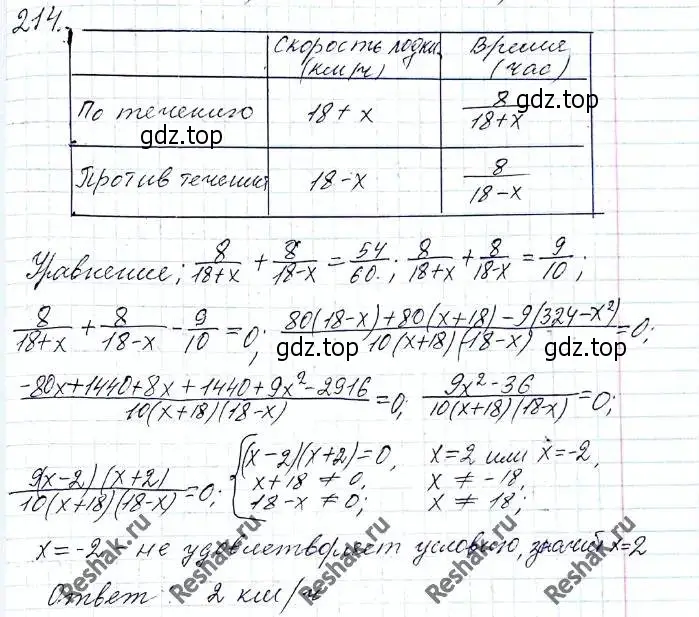 214.
Скорость лодки (км/ч) Время (час)
По течению 18+x 8/18+x
gdz.top gdz.top
Против течения 18-x 8/18-x
Уравнение; 8/18+x + 8/18-x = 54/60.; 8/18+x + 8/18-x = 9/10;
8/18+x + 8/18-x - 9/10 = 0; 80(18-x)+80(x+18)-9(324-x²)/10(x+18)(18-x) = 0;
gdz.top gdz.top
-80x+1440+8x+1440+9x²-2916/10(x+18)(18-x) = 0; 9x²-36/10(x+18)(18-x) = 0;
9(x-2)(x+2)/10(x+18)(18-x) = 0; { (x-2)(x+2)=0, x=2 или x=-2,
x+18 ≠ 0, x ≠ -18,
18-x ≠ 0; x ≠ 18;
x=-2 - не удовлетворяет условию, значит x=2
Ответ: 2 км/ч
Reshak.ru Reshak.ru Reshak.ru Reshak.ru